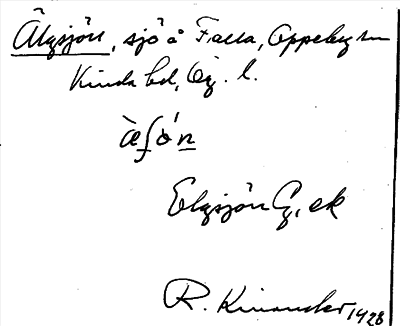 Älgsjön, sjö å Falla, Oppeby sn
Kinda hd, Ög. l.
Elgsjön G, ek
R. Kinander 1928